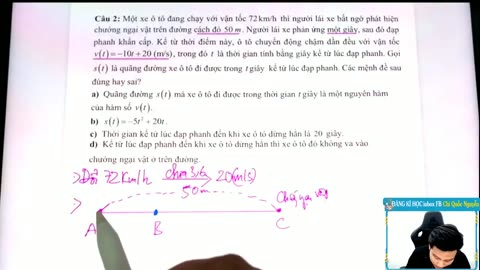 Câu 2: Một xe ô tô đang chạy với vận tốc 72km/h thì người lái xe bất ngờ phát hiện
chướng ngại vật trên đường cách đó 50 m. Người lái xe phản ứng một giây, sau đó đạp
phanh khẩn cấp. Kể từ thời điểm này, ô tô chuyển động chậm dần đều với vận tốc
v(t)=-10t+20 (m/s), trong đó t là thời gian tính bằng giây kể từ lúc đạp phanh. Gọi
s(t) là quãng đường xe ô tô đi được trong t giây kể từ lúc đạp phanh. Các mệnh đề sau
đúng hay sai?
a) Quãng đường s(t) mà xe ô tô đi được trong thời gian t giây là một nguyên hàm
của hàm số v(t).
b) s(t)=-5t²+20t.
c) Thời gian kể từ lúc đạp phanh đến khi xe ô tô dừng hẳn là 20 giây.
d) Kể từ lúc đạp phanh đến khi xe ô tô dừng hẳn thì xe ô tô đó không va vào
chướng ngại vật ở trên đường.
>Đổi 72km/h chia 3,6 20(m/s)
50m
>
A B C
ĐĂNG KÍ HỌC inbox FB Chí Quốc Nguyễn